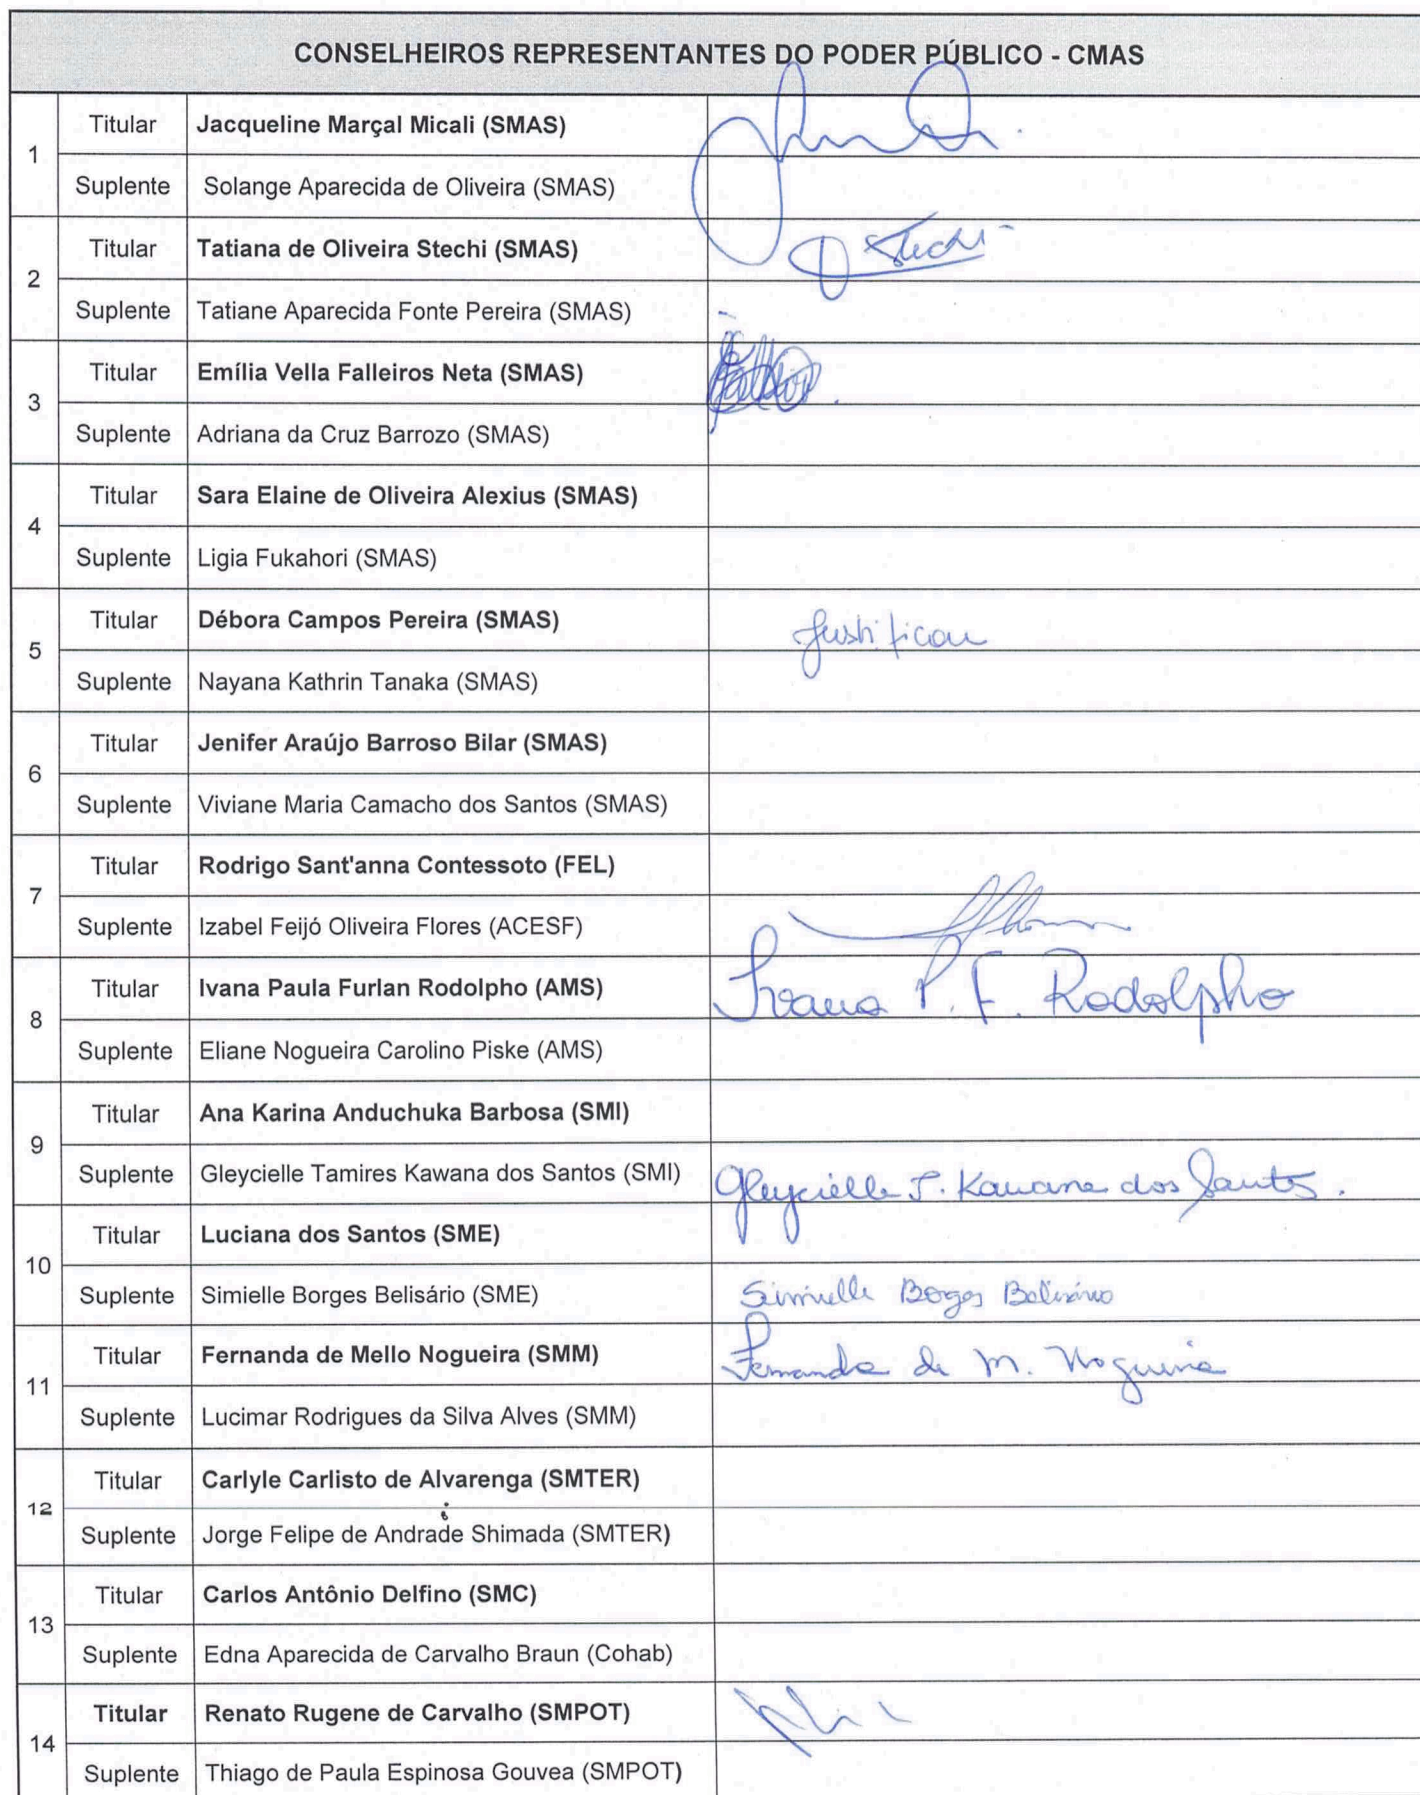 CONSELHEIROS REPRESENTANTES DO PODER PÚBLICO - CMAS
1
Titular Jacqueline Marçal Micali (SMAS)
Suplente Solange Aparecida de Oliveira (SMAS)
2
Titular Tatiana de Oliveira Stechi (SMAS) Stechi
Suplente Tatiane Aparecida Fonte Pereira (SMAS)
3
Titular Emília Vella Falleiros Neta (SMAS)
Suplente Adriana da Cruz Barrozo (SMAS)
4
Titular Sara Elaine de Oliveira Alexius (SMAS)
Suplente Ligia Fukahori (SMAS)
5
Titular Débora Campos Pereira (SMAS) Justificou
Suplente Nayana Kathrin Tanaka (SMAS)
6
Titular Jenifer Araújo Barroso Bilar (SMAS)
Suplente Viviane Maria Camacho dos Santos (SMAS)
7
Titular Rodrigo Sant'anna Contessoto (FEL)
Suplente Izabel Feijó Oliveira Flores (ACESF)
8
Titular Ivana Paula Furlan Rodolpho (AMS) Ivana P. F. Rodolpho
Suplente Eliane Nogueira Carolino Piske (AMS)
9
Titular Ana Karina Anduchuka Barbosa (SMI)
Suplente Gleycielle Tamires Kawana dos Santos (SMI) Gleycielle T. Kawana dos Santos.
10
Titular Luciana dos Santos (SME)
Suplente Simielle Borges Belisário (SME) Simielle Borges Belisário
11
Titular Fernanda de Mello Nogueira (SMM) Fernanda de M. Nogueira
Suplente Lucimar Rodrigues da Silva Alves (SMM)
12
Titular Carlyle Carlisto de Alvarenga (SMTER)
Suplente Jorge Felipe de Andrade Shimada (SMTER)
13
Titular Carlos Antônio Delfino (SMC)
Suplente Edna Aparecida de Carvalho Braun (Cohab)
14
Titular Renato Rugene de Carvalho (SMPOT)
Suplente Thiago de Paula Espinosa Gouvea (SMPOT)